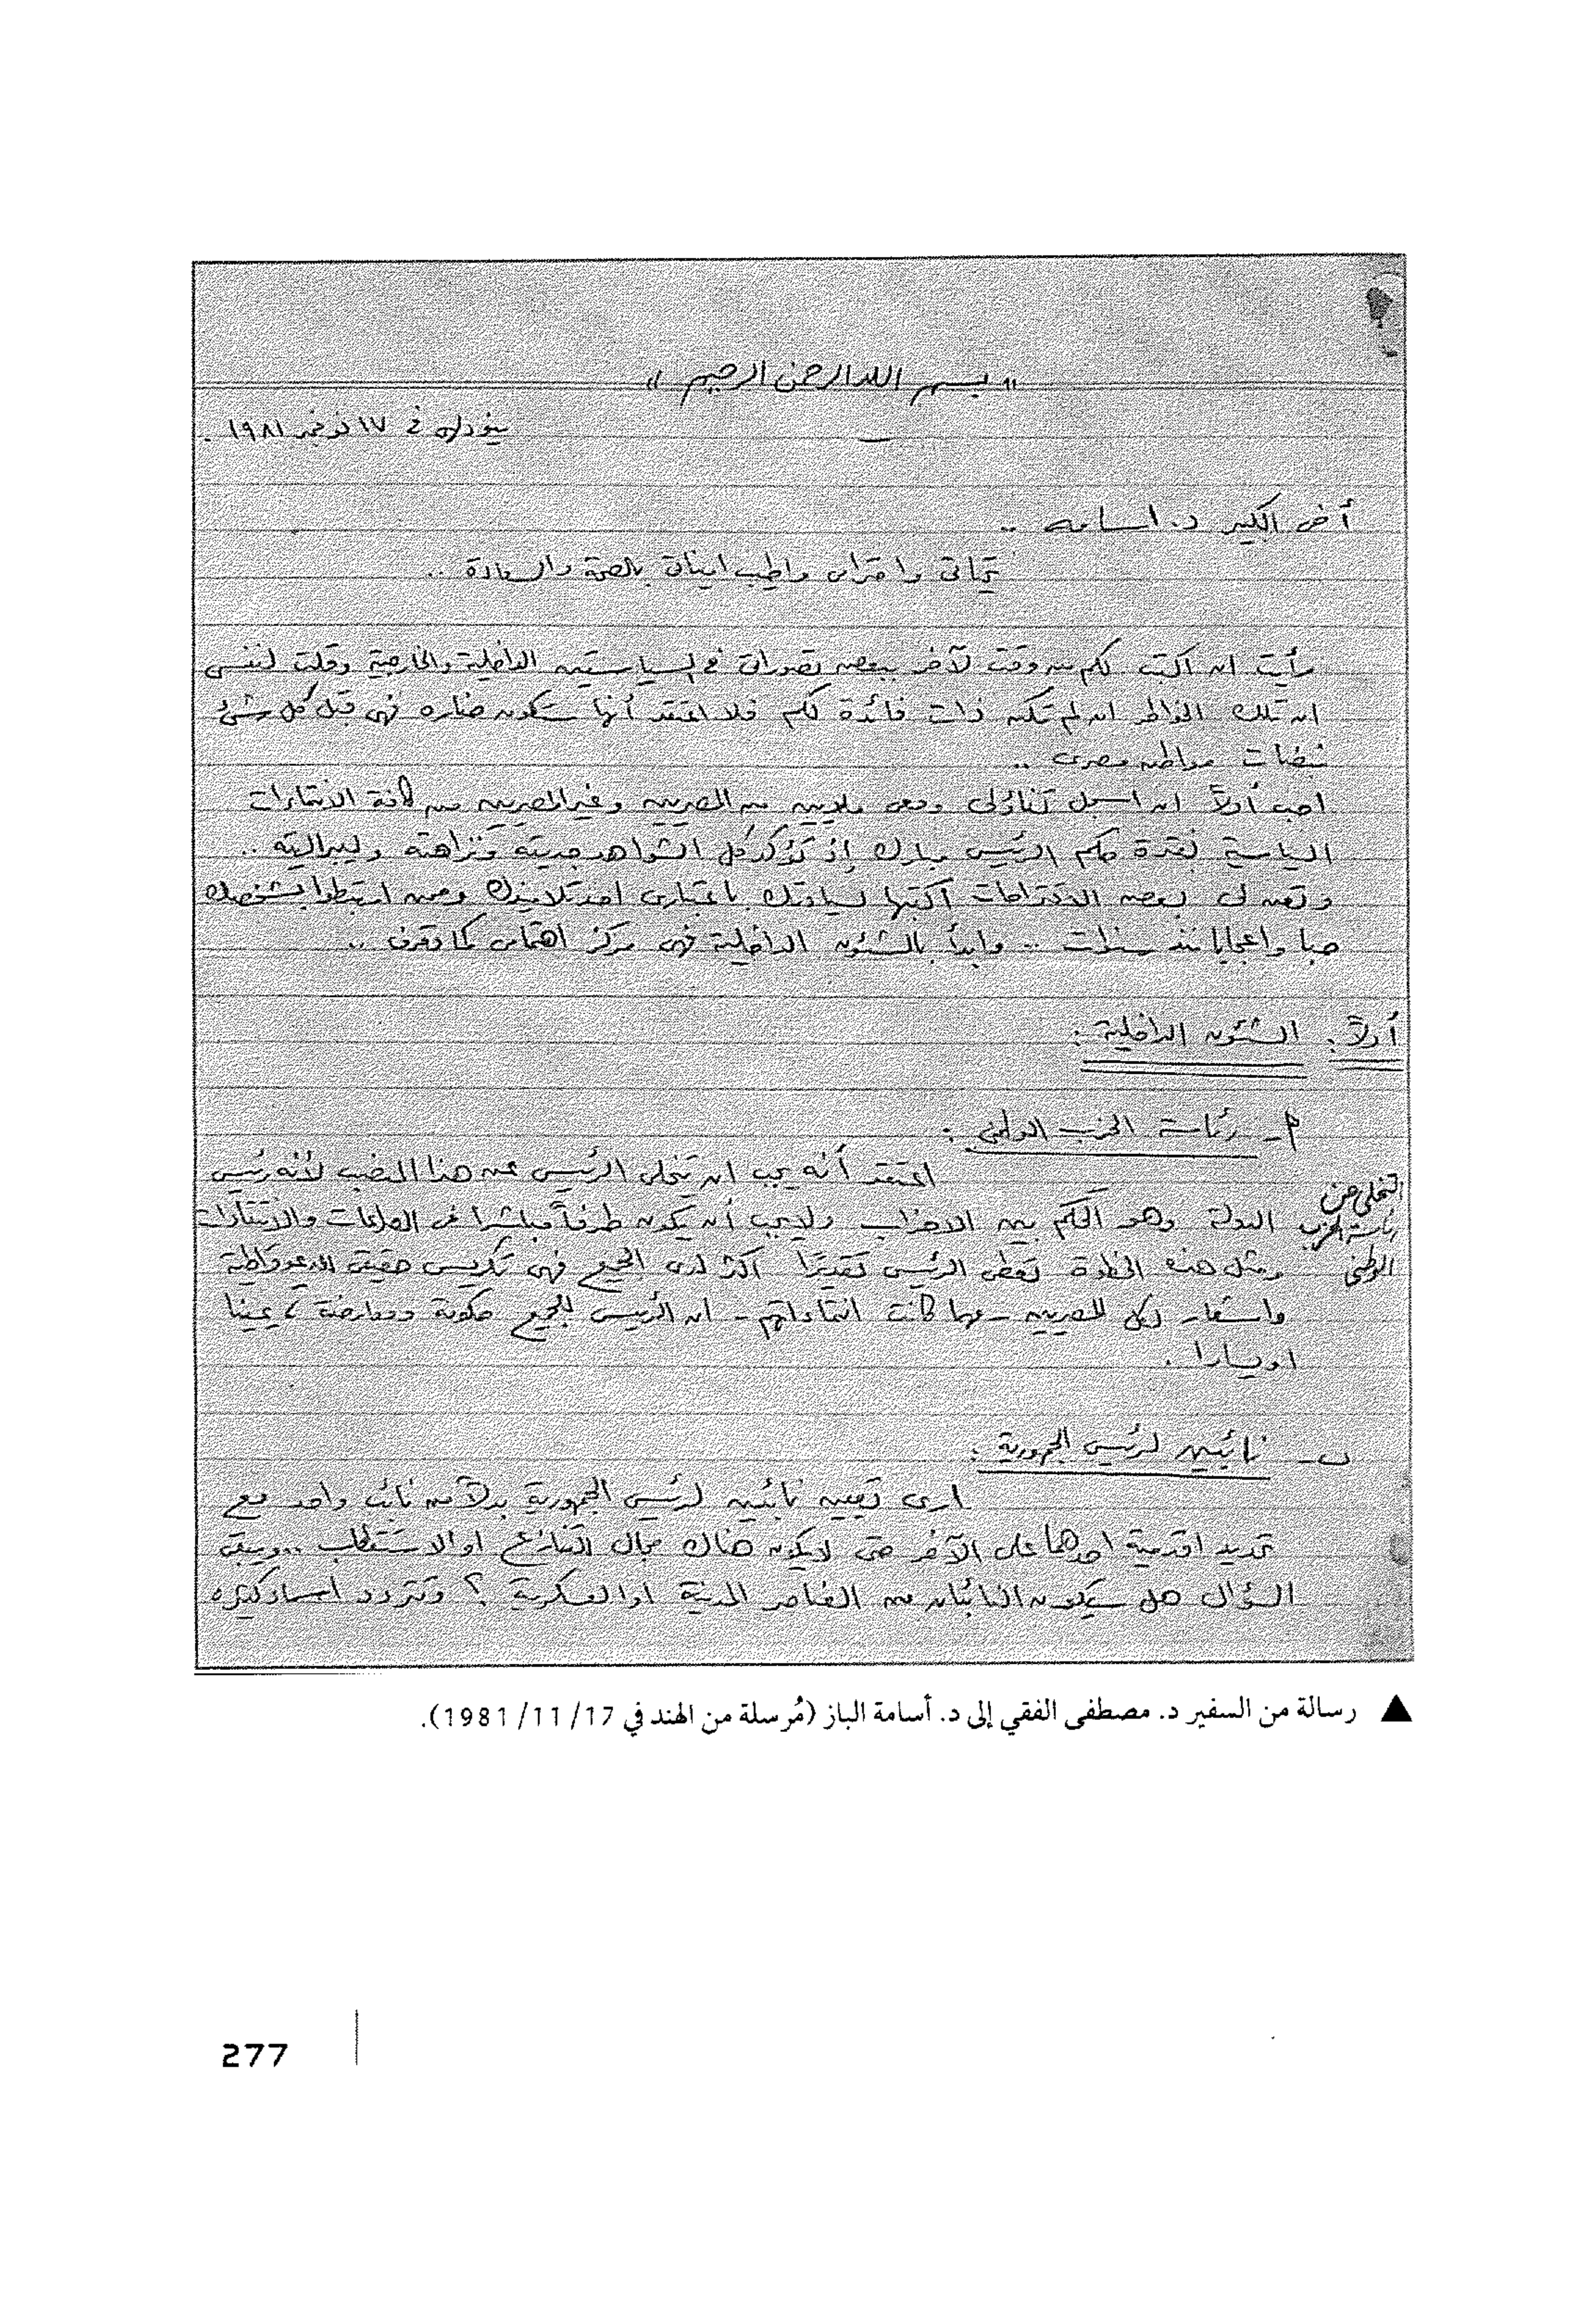 « بسم الله الرحمن الرحيم »
نيودلهى فى ١٧ نوفمبر ١٩٨١ .
أخى الكبير د. اسامه ..
تحياتى واحترامى واطيب امنياتى بالصحة والسعادة ..
رأيت ان اكتب لكم من وقت لآخر ببعض تصوراتى فى السياستين الداخلية والخارجية وقلت لنفسى
ان تلك الخواطر ان لم تكن ذات فائدة لكم فلا اعتقد أنها ستكون ضاره فهى قبل كل شئ
نبضات مواطن مصرى ..
احب أولاً ان اسجل تفاؤلى ومعى ملايين من المصريين وغير المصريين من كافة الانتماءات
السياسية لفترة حكم الرئيس مبارك إذ تؤكد كل الشواهد جديته ونزاهته وليبراليته ..
وتعن لى بعض الاقتراحات أكتبها لسيادتك باعتبارى احد تلاميذك وممن ارتبطوا بشخصك
حبا واعجابا منذ سنوات .. وابدأ بالشئون الداخلية فهى مركز اهتمامى كما تعرف ..
أولاً : الشئون الداخلية :
أ- رئاسة الحزب الوطنى :
اعتقد أنه يجب ان يتخلى الرئيس عن هذا المنصب لأنه رئيس
التخلى عن
رئاسة الحزب
الوطنى
الدولة وهو الحكم بين الاحزاب ولايجب أن يكون طرفاً مباشرا فى الصراعات والانتقادات
ومثل هذه الخطوة تعطى الرئيس تقديرا اكثر لدى الجميع فهى تكريس حقيقى للديموقراطية
واشعار لكل المصريين - مهما كانت انتماءاتهم - ان الرئيس للجميع حكومة ومعارضة ، يمينا
او يسارا .
ب- نائبين لرئيس الجمهورية :
ارى تعيين نائبين لرئيس الجمهورية بدلاً من نائب واحد مع
تحديد اقدمية احدهما على الآخر حتى لايكون هناك مجال للتنازع او الاستقطاب .. ويبقى
السؤال هل سيكون النائبان من العناصر المدنية او العسكرية ؟ وتتردد اسماء كثيره
▲ رسالة من السفير د. مصطفى الفقي إلى د. أسامة الباز (مُرسلة من الهند في 17/ 11/ 1981).
277